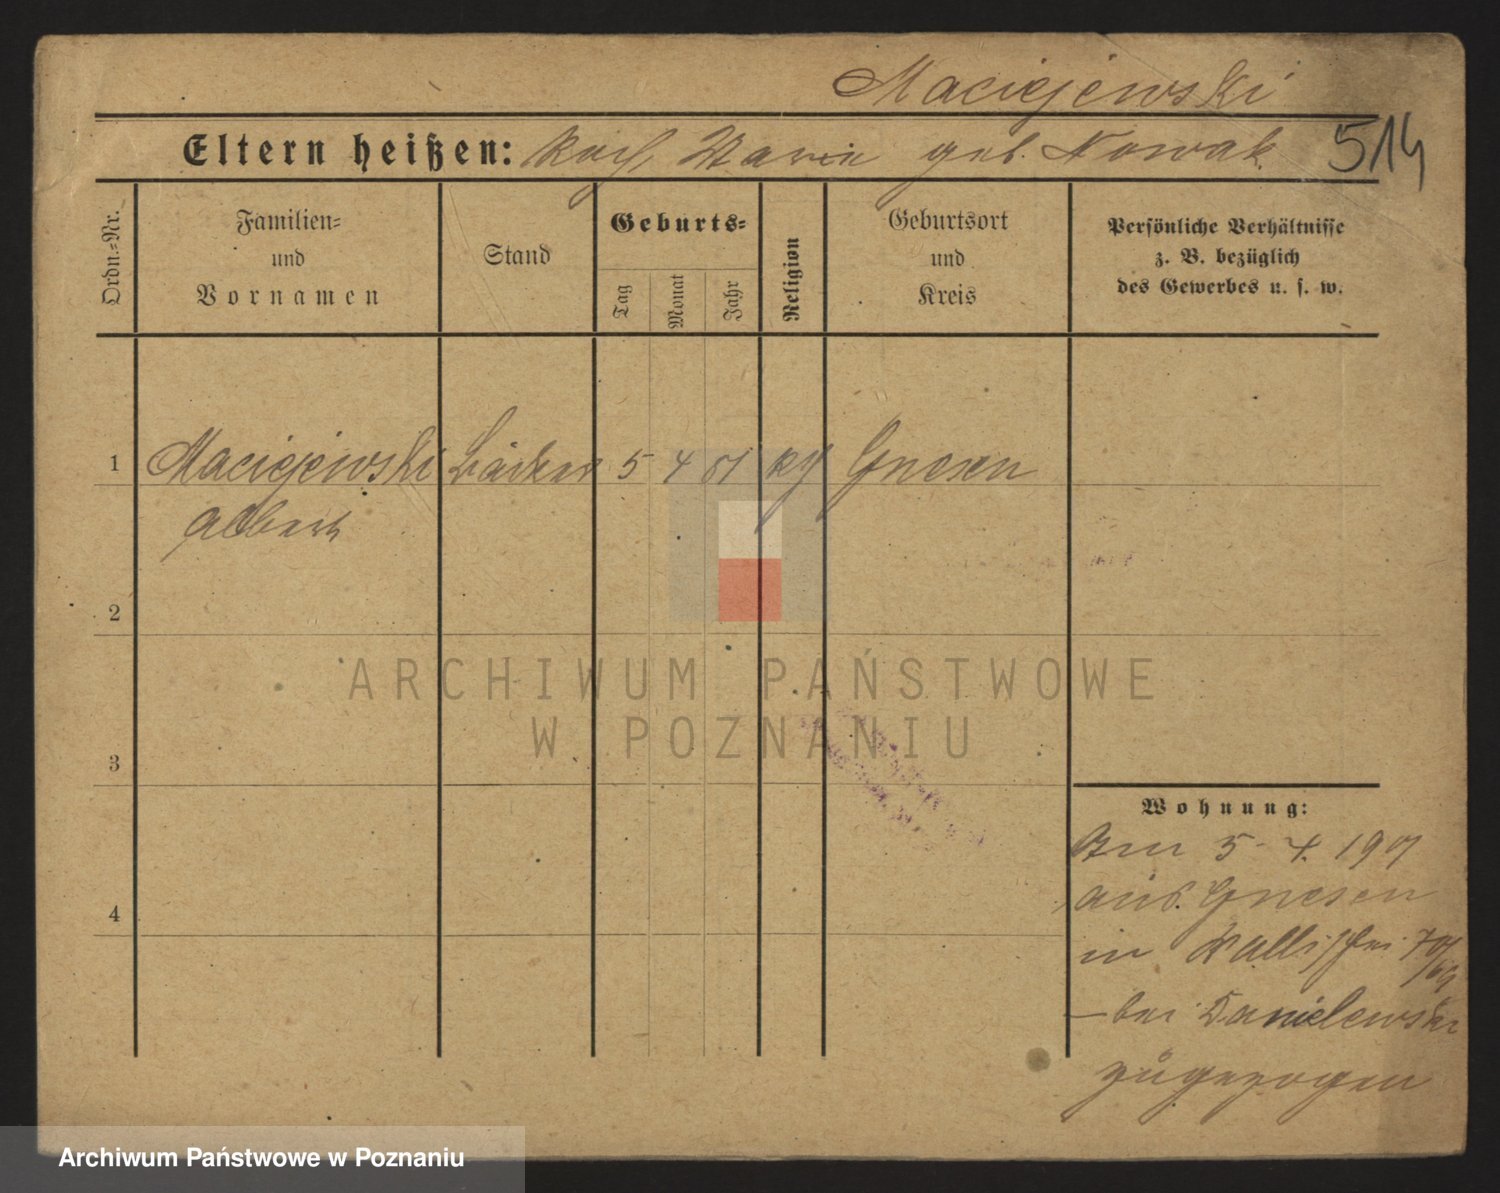 Maciejewski
Eltern heißen: Marie geb. Nowak 514
Ordn.-Nr.
Familien-
und
Vornamen
Stand
Geburts-
Tag
Monat
Jahr
Religion
Geburtsort
und
Kreis
Persönliche Verhältnisse
z. B. bezüglich
des Gewerbes u. s. w.
1 Maciejewski Bäcker 5 4 Gnesen
Albert
2
3
4
Wohnung:
Am 5. 4. 190
aus Gnesen
in Wallischei
bei Danielewski
zugezogen
ARCHIWUM PAŃSTWOWE
W POZNANIU
Archiwum Państwowe w Poznaniu